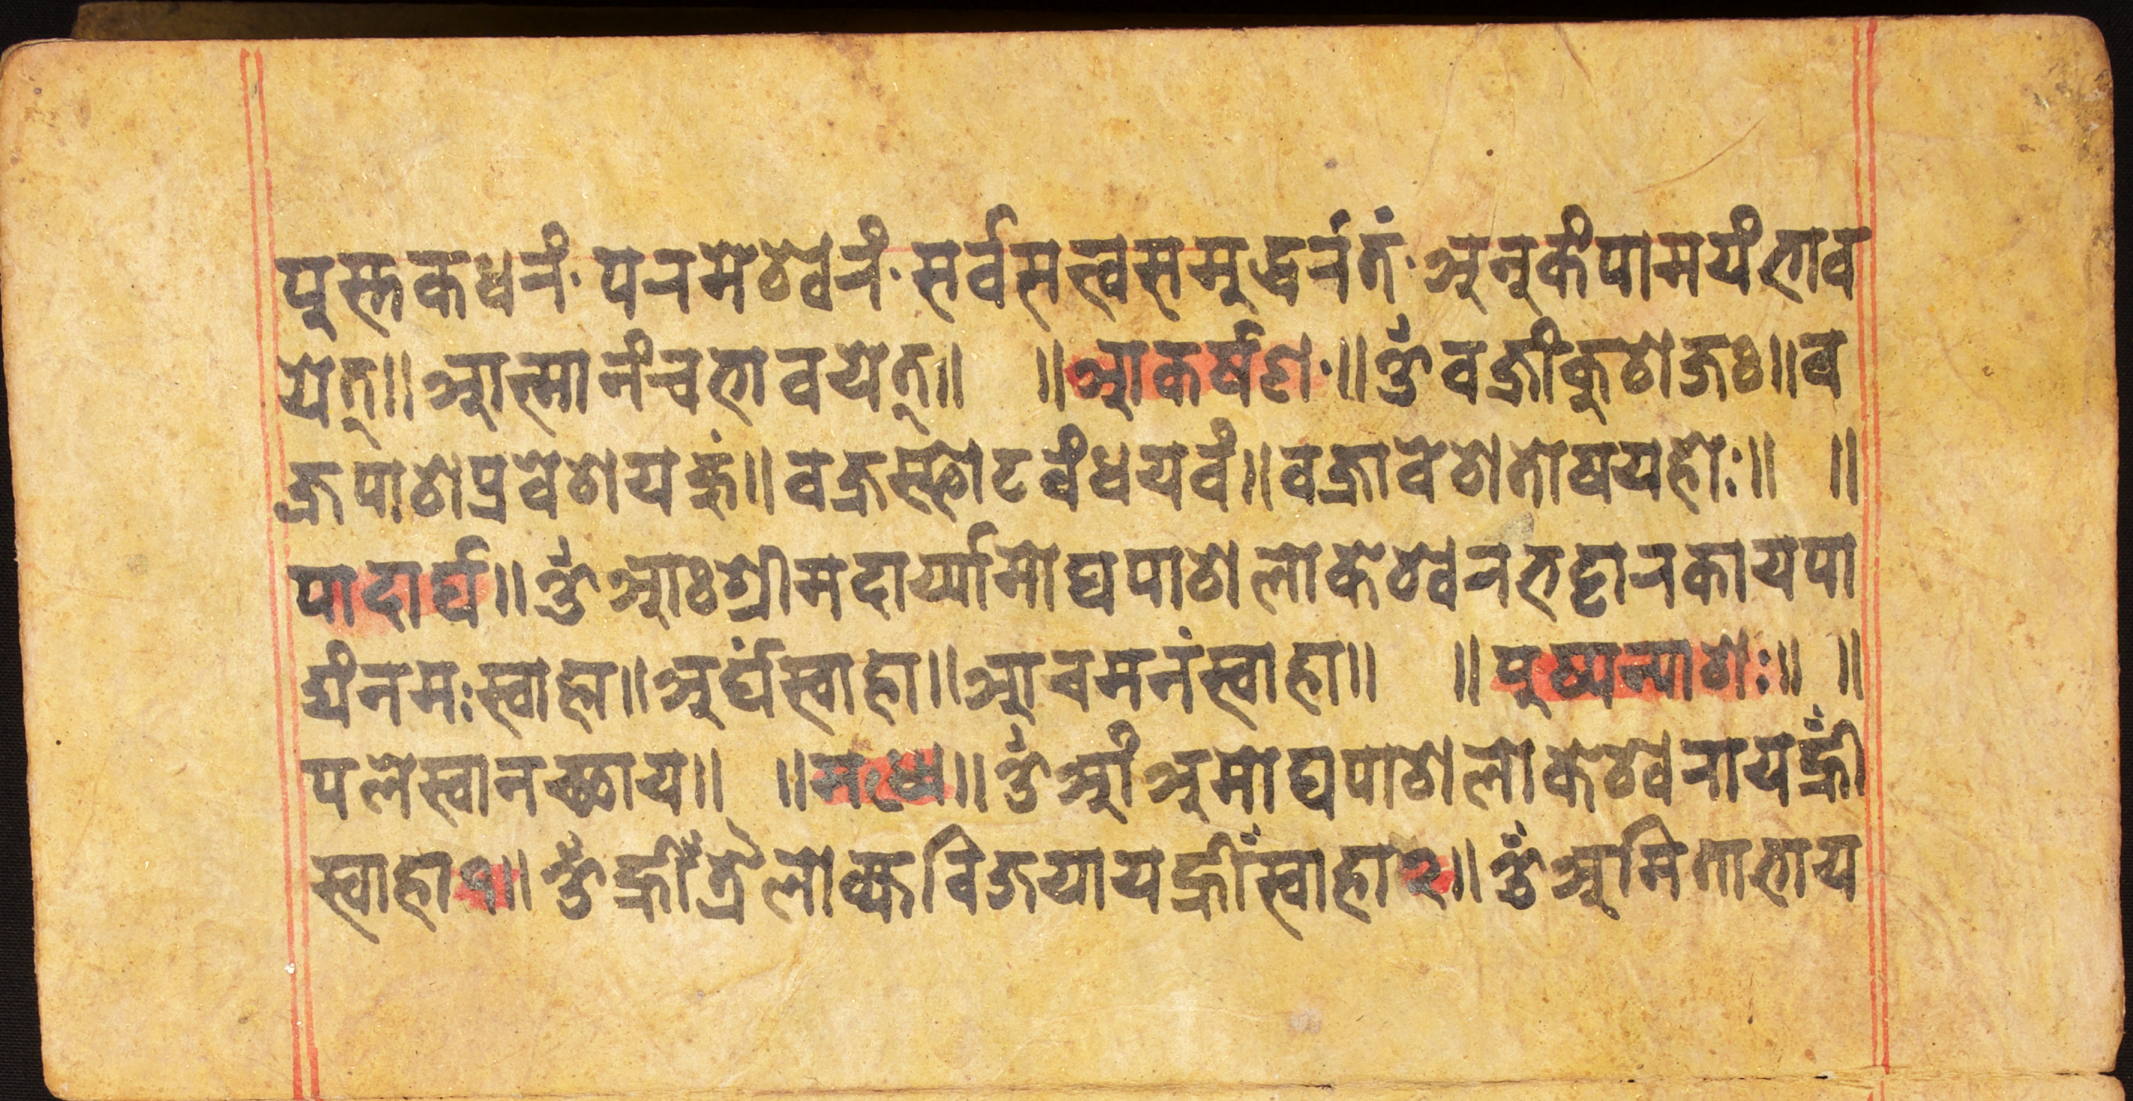 पुस्तकधरं· परमेश्वरं· सर्वसत्त्वसमुद्धर्रतं· अनुकंपामयंभाव
येत्॥ आत्मानंचभावयेत्॥ ॥आकर्षण·॥ ॐवज्रांकुशजः॥व
ज्रपाशप्रवेशयहूं॥ वज्रस्फोटबंधयवं॥ वज्रावेशतोषयहोः॥ ॥
पादार्घ॥ ॐआःश्रीमदार्य्यामोघपाशलोकेश्वरभट्टारकायपा
द्यंनमःस्वाहा॥ अर्घंस्वाहा॥ आचमनंस्वाहा॥ ॥पुष्पन्याशः॥ ॥
पलेस्वानच्छाय॥ ॥मध्ये॥ ॐआंअमोघपाशलोकेश्वरायह्रीं
स्वाहा१॥ ॐह्रींत्रैलोक्यविजयायह्रींस्वाहा२॥ ॐअमिताभाय